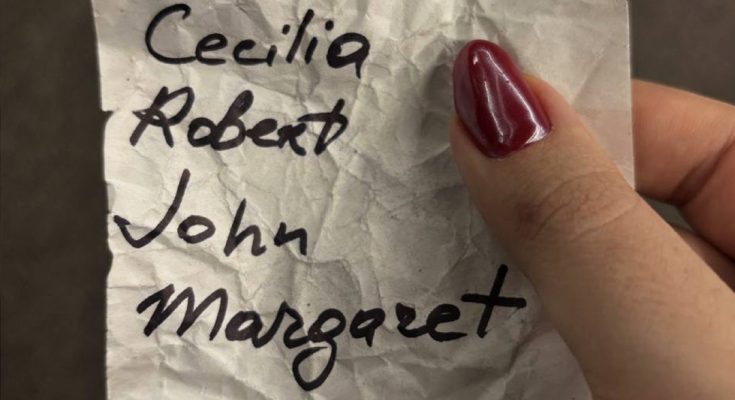 Cecilia
Robert
John
Margaret